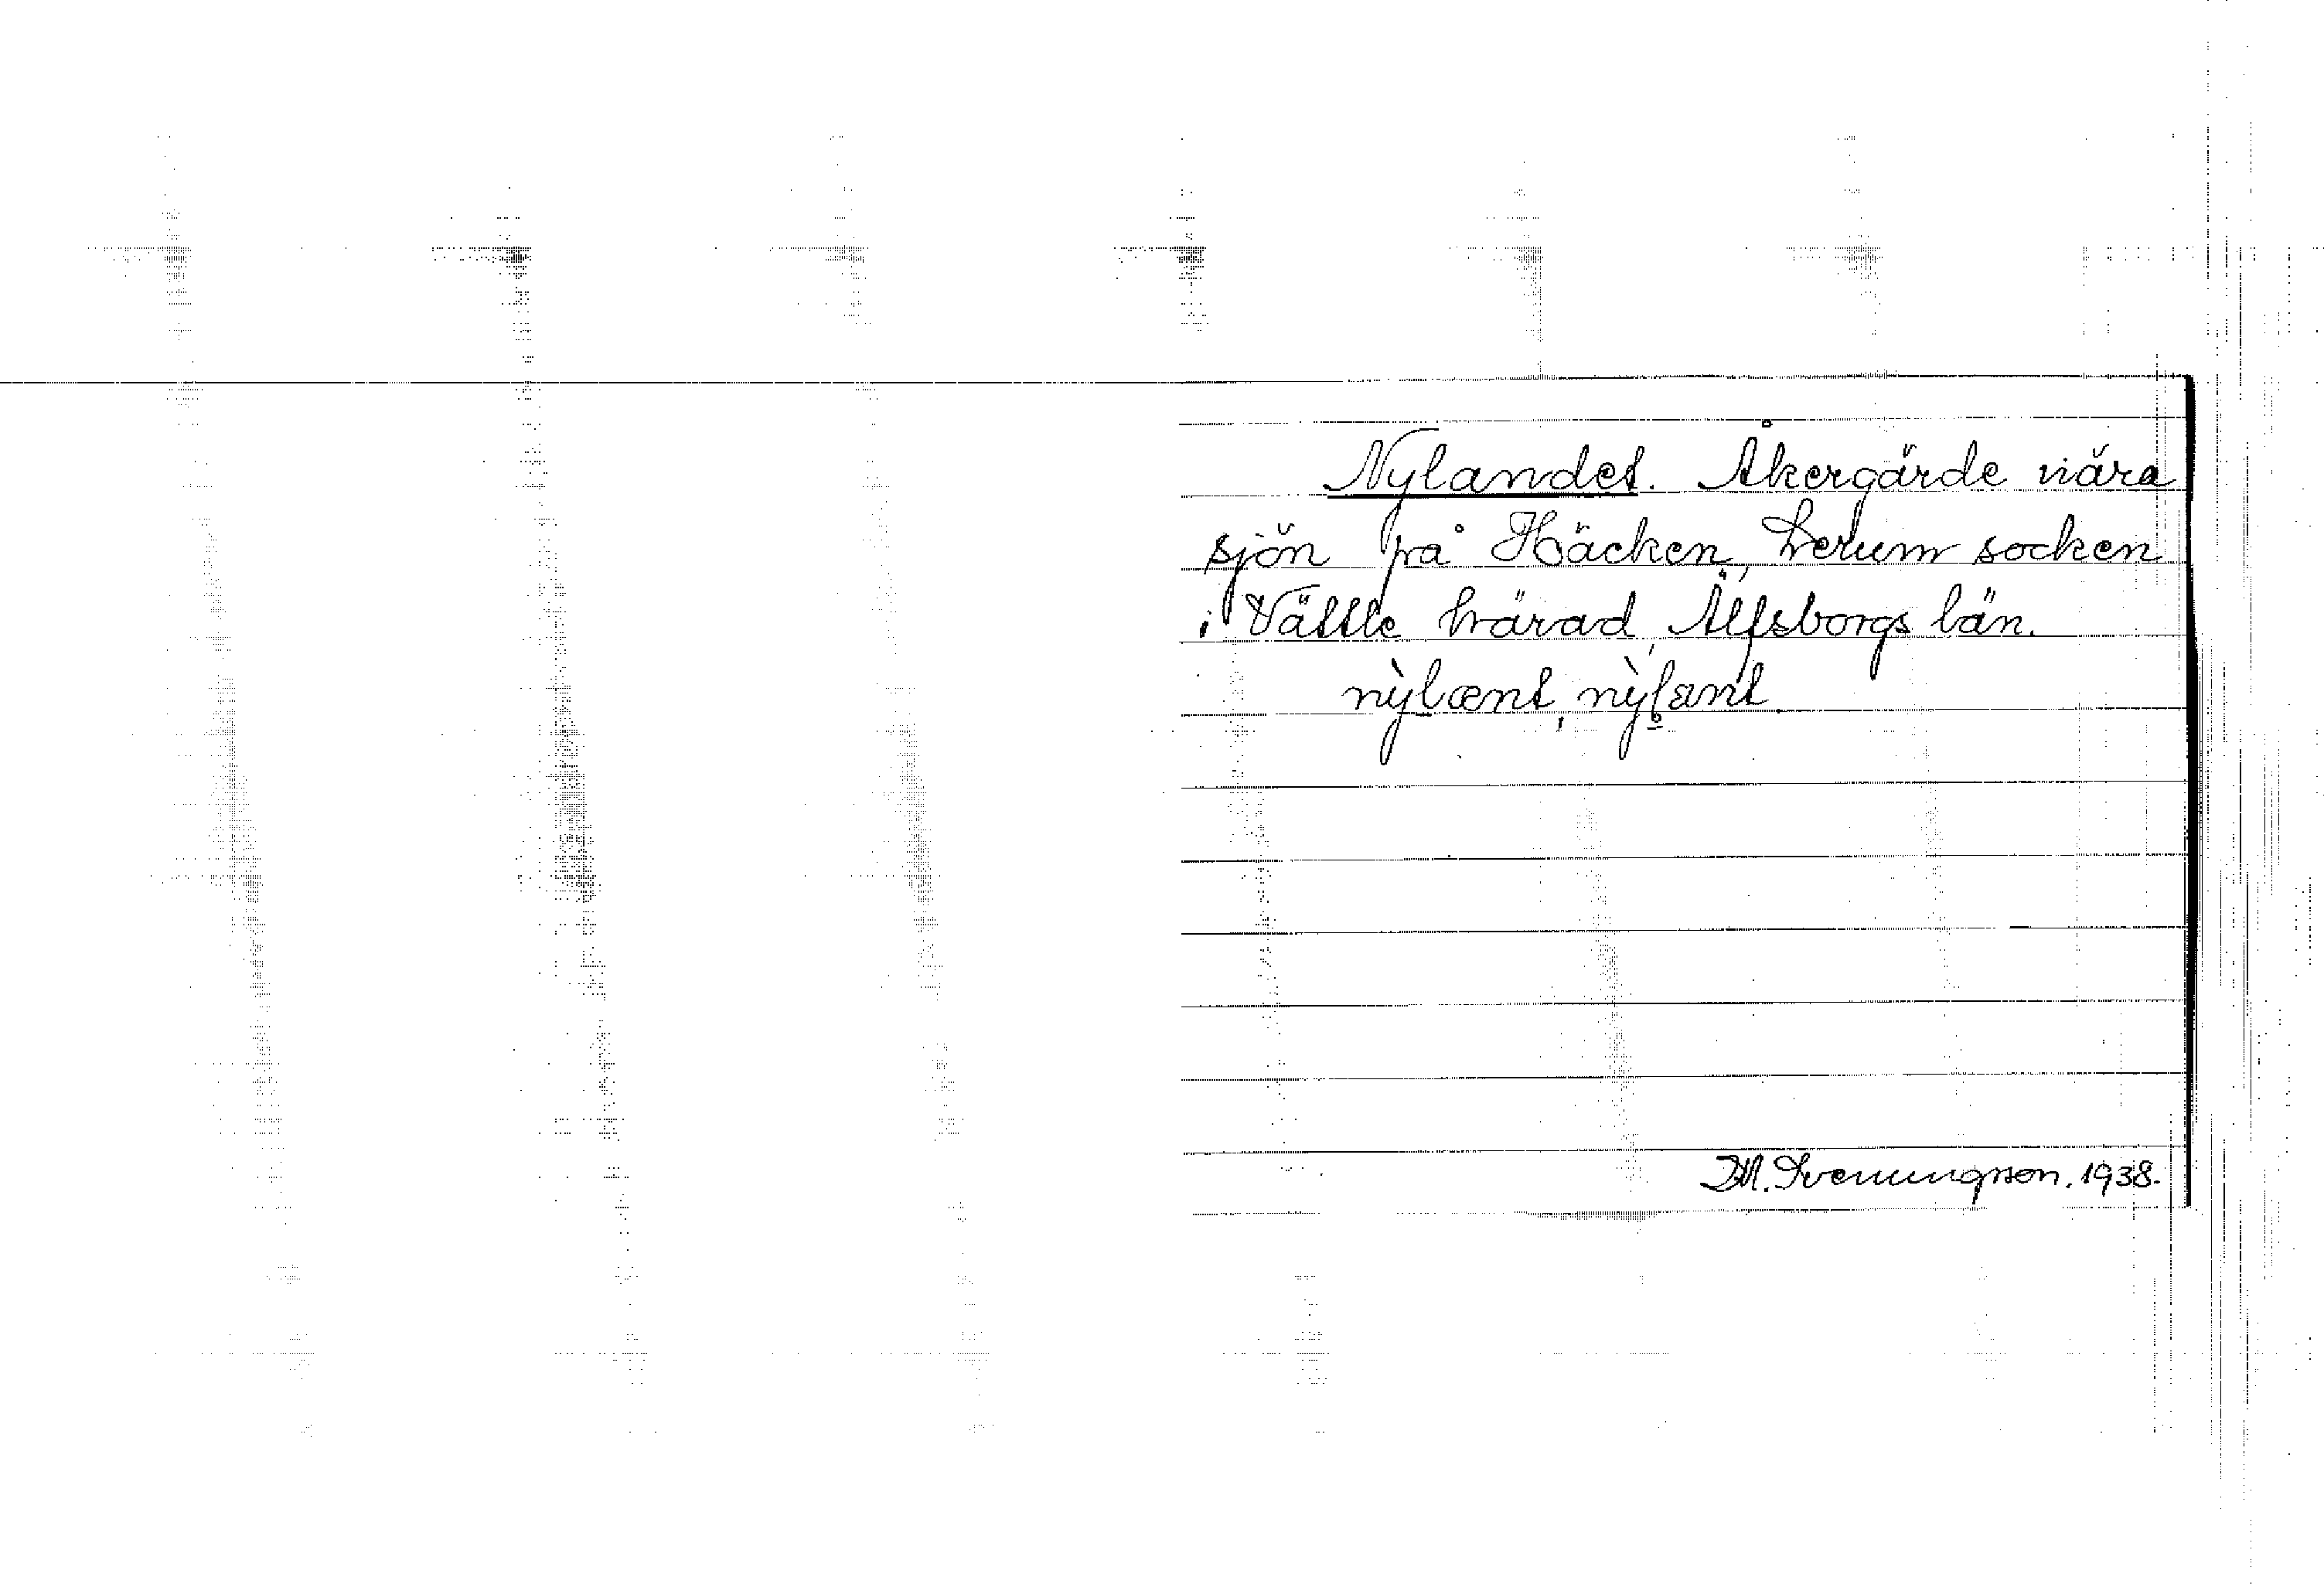 Nylandet. Åkergärde nära
sjön på Häcken, Lerum socken
i Vättle härad, Älfsborgs län.
nỳlænt, nỳlænt
M. Svenungsson. 1938.